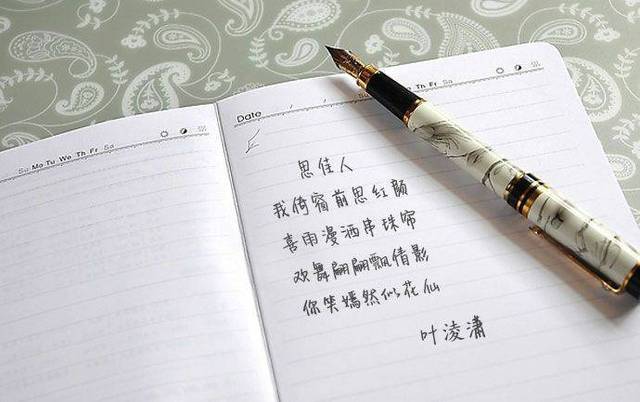 Su Mo Tu We Th Fr Sa
Date / / Su Mo Tu We Th Fr Sa
思佳人
我倚窗前思红颜
喜雨漫洒串珠帘
欢舞翩翩飘倩影
你笑嫣然似花仙
叶凌潇